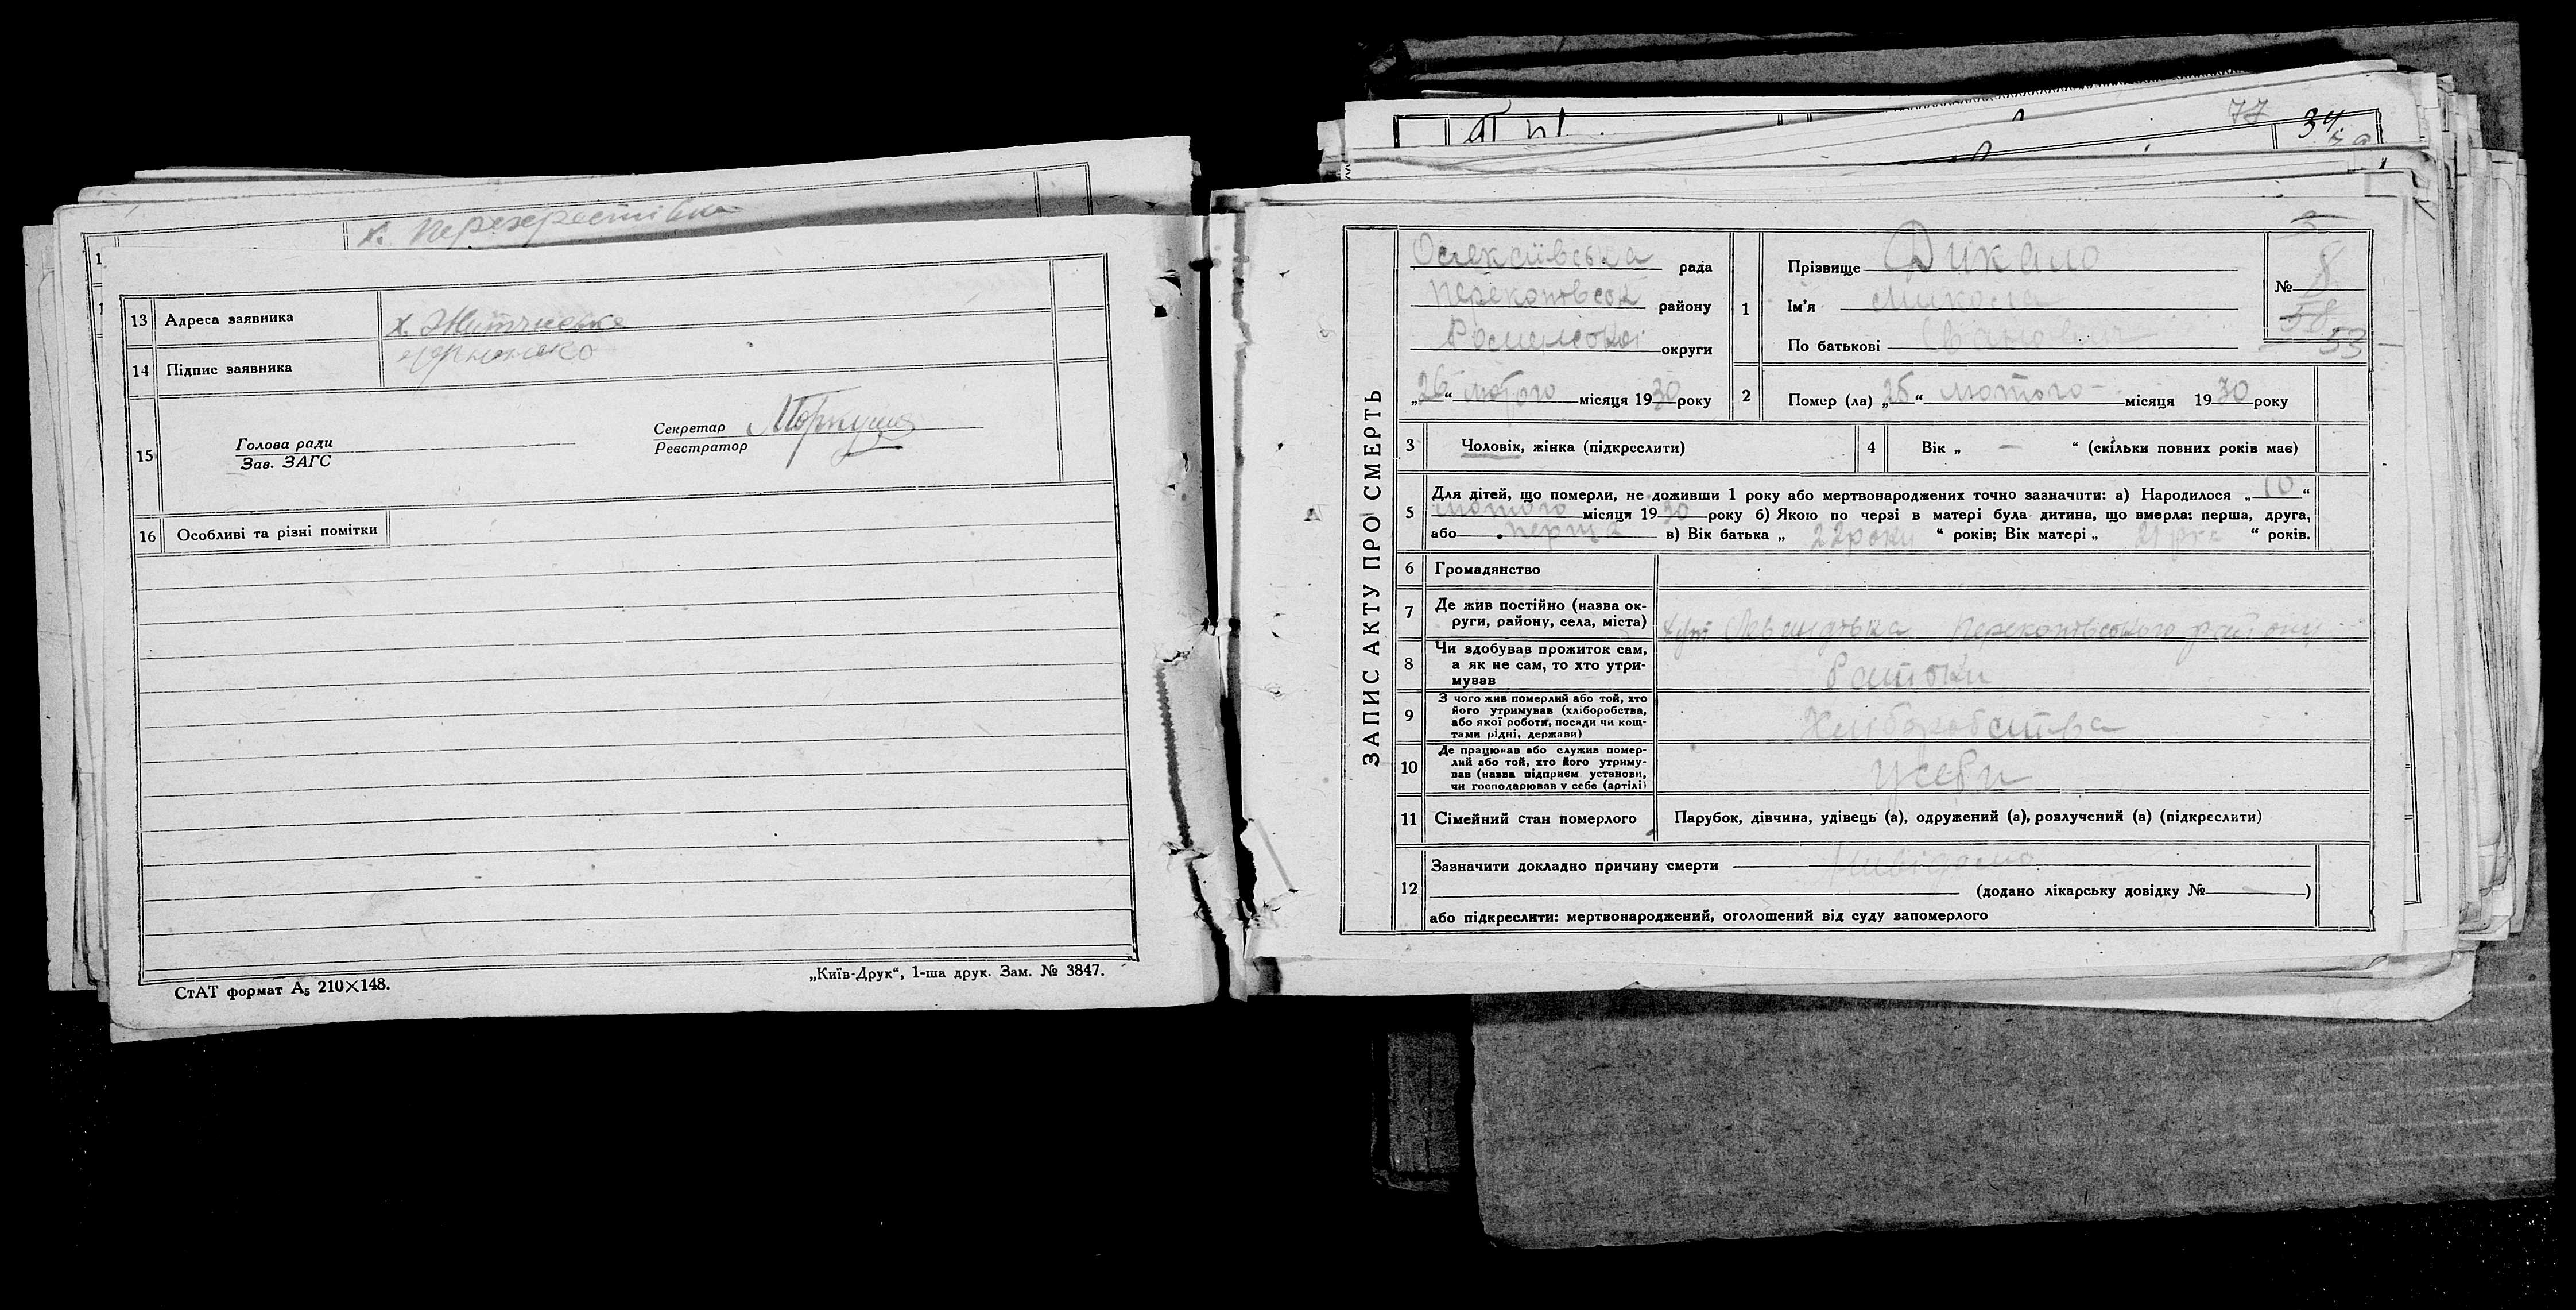 х. Перехрестівка
13 Адреса заявника х.
14 Підпис заявника
15 Голова ради
Зав. ЗАГС
Секретар
Реєстратор
16 Особливі та різні помітки
СтАТ формат А₅ 210×148.
„Київ-Друк“, 1-ша друк. Зам. № 3847.
77 34
ЗАПИС АКТУ ПРО СМЕРТЬ
Олексіївська рада
району
Роменської округи
„26“ лютого місяця 1930 року
1 Прізвище Дикало
Ім’я Микола
По батькові Іванович
№ 8
58
53
2 Помер (ла) „25“ лютого місяця 1930 року
3 Чоловік, жінка (підкреслити)
4 Вік „ — “ (скільки повних років має)
5 Для дітей, що померли, не доживши 1 року або мертвонароджених точно зазначити: а) Народилося „10“
лютого місяця 1930 року б) Якою по черзі в матері була дитина, що вмерла: перша, друга,
або перша в) Вік батька „ 22 роки “ років; Вік матері „ 21 “ років.
6 Громадянство
7 Де жив постійно (назва ок-
руги, району, села, міста)
району
8 Чи здобував прожиток сам,
а як не сам, то хто утри-
мував
Батьки
9 З чого жив померлий або той, хто
його утримував (хліборобства,
або якої роботи, посади чи кош-
тами рідні, держави)
Хліборобства
10 Де працював або служив помер-
лий або той, хто його утриму-
вав (назва підприєм. установи,
чи господарював у себе (артілі)
у себе
11 Сімейний стан померлого Парубок, дівчина, удівець (а), одружений (а), розлучений (а) (підкреслити)
12 Зазначити докладно причину смерти
(додано лікарську довідку № — )
або підкреслити: мертвонароджений, оголошений від суду запомерлого